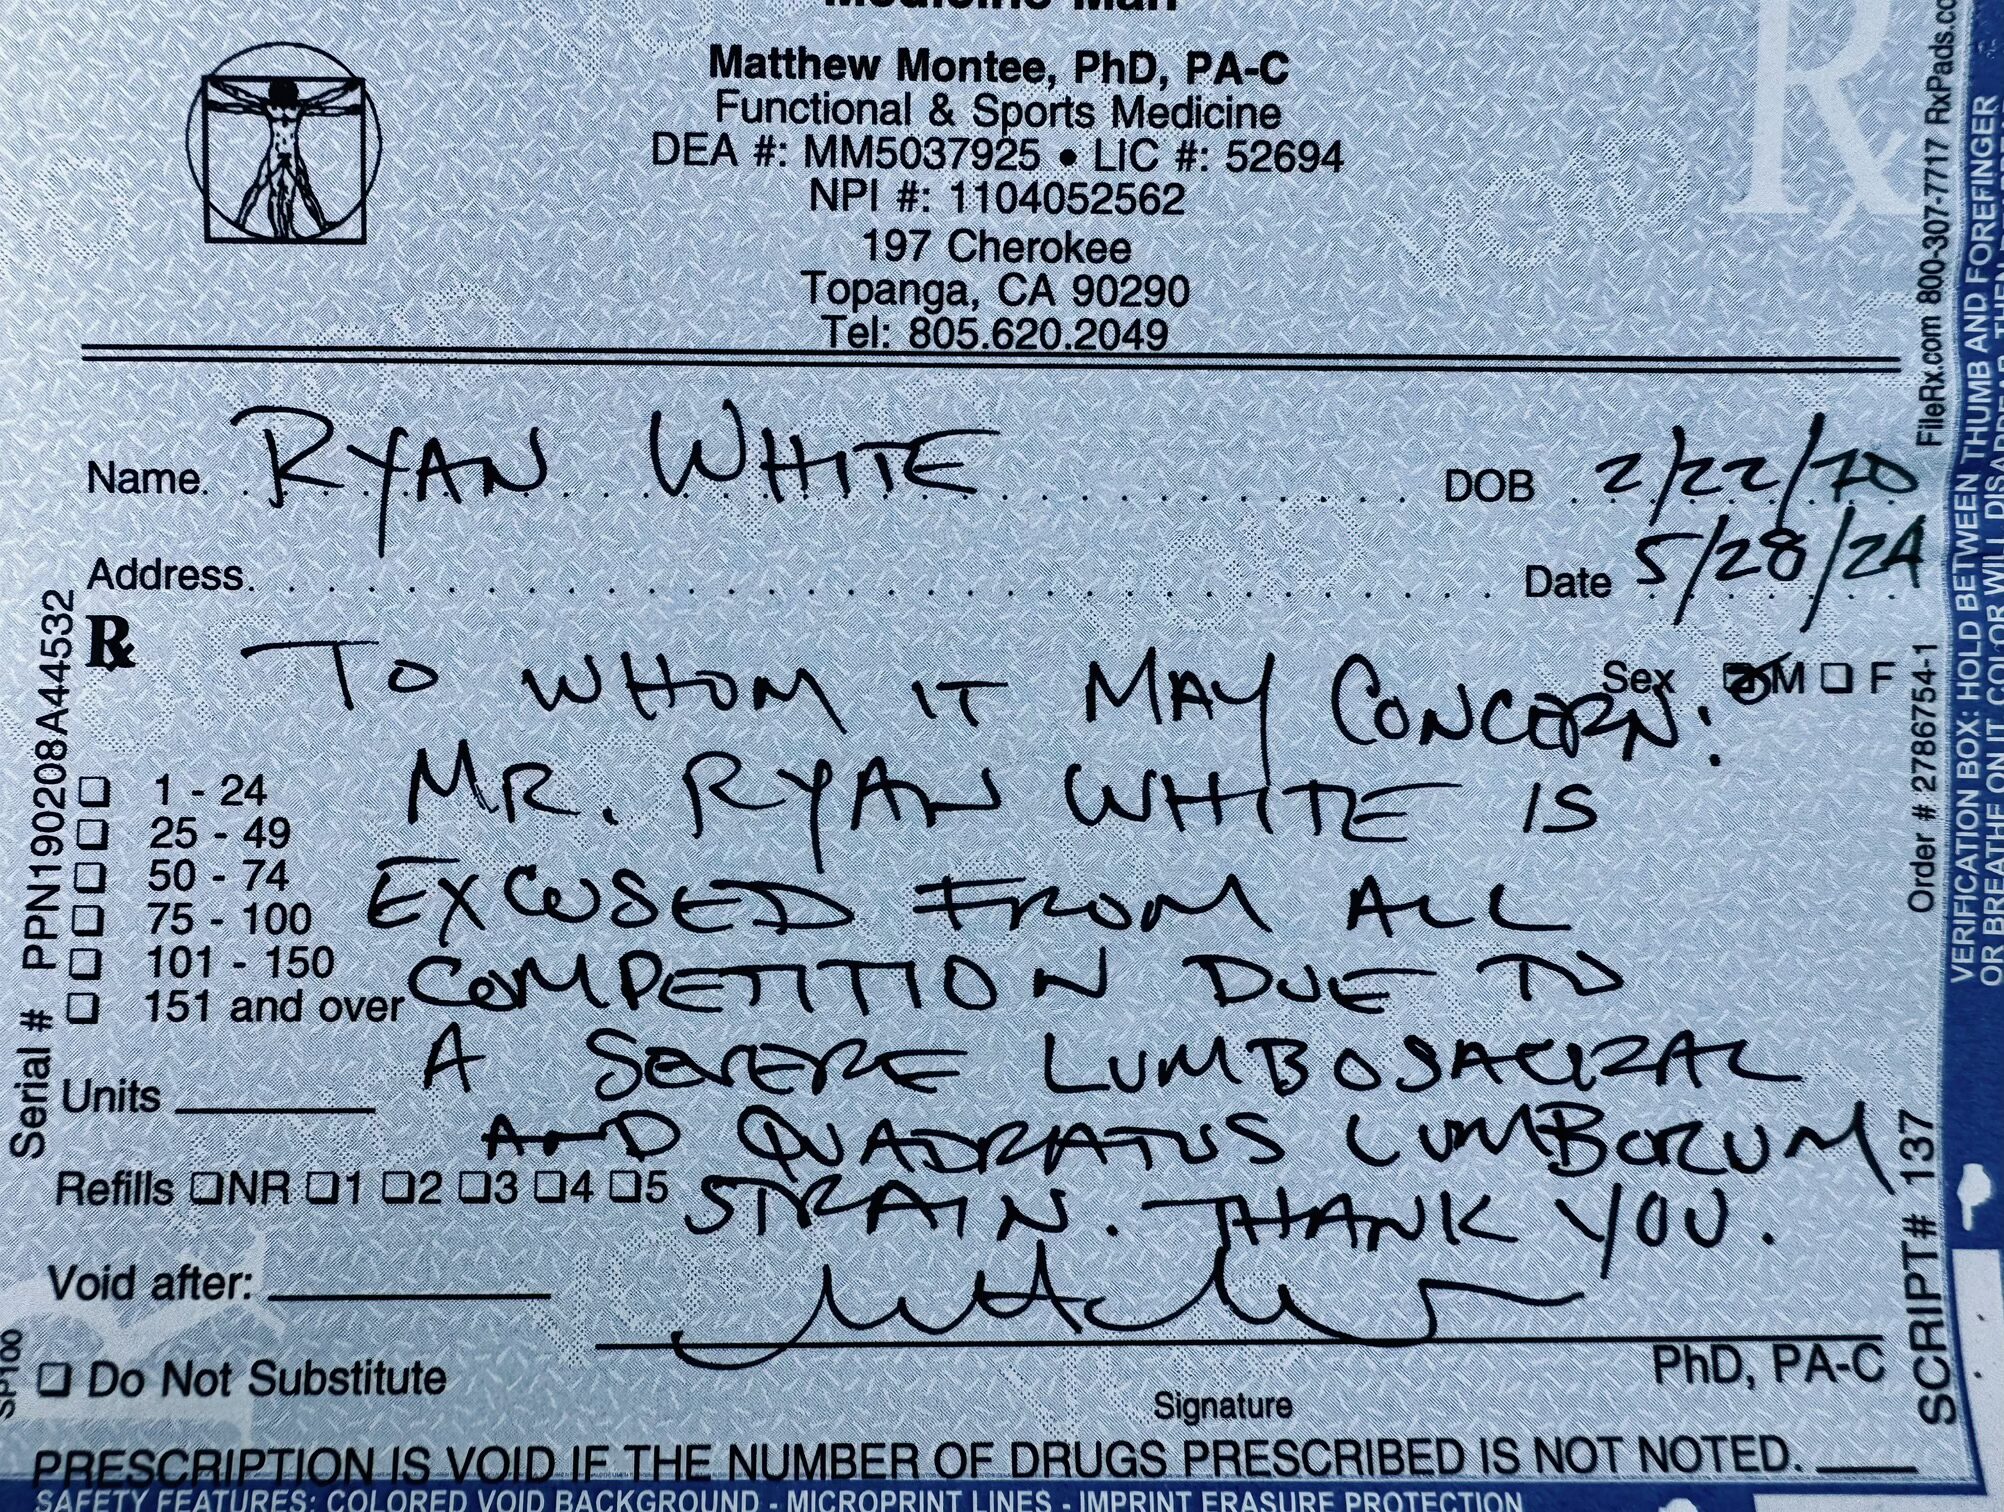 Medicine Man
Matthew Montee, PhD, PA-C
Functional & Sports Medicine
DEA #: MM5037925 • LIC #: 52694
NPI #: 1104052562
197 Cherokee
Topanga, CA 90290
Tel: 805.620.2049
Name RYAN WHITE DOB 2/22/70
Address Date 5/28/24
Rx
Sex ☒M ☐ F
TO WHOM IT MAY CONCERN:
MR. RYAN WHITE IS
EXCUSED FROM ALL
COMPETITION DUE TO
A SEVERE LUMBOSACRAL
AND QUADRATUS LUMBORUM
STRAIN. THANK YOU.
☐ 1 - 24
☐ 25 - 49
☐ 50 - 74
☐ 75 - 100
☐ 101 - 150
☐ 151 and over
Units
Refills ☐NR ☐1 ☐2 ☐3 ☐4 ☐5
Void after:
☐ Do Not Substitute
PhD, PA-C
Signature
PRESCRIPTION IS VOID IF THE NUMBER OF DRUGS PRESCRIBED IS NOT NOTED.
SAFETY FEATURES: COLORED VOID BACKGROUND - MICROPRINT LINES - IMPRINT ERASURE PROTECTION
Serial # PPN190208A44532
SP100
FileRx.com 800-307-7717 RxPads.co
Order # 2786754-1
SCRIPT# 137
VERIFICATION BOX: HOLD BETWEEN THUMB AND FOREFINGER
OR BREATHE ON IT, COLOR WILL DISAPPEAR, THEN
Rx
VOID